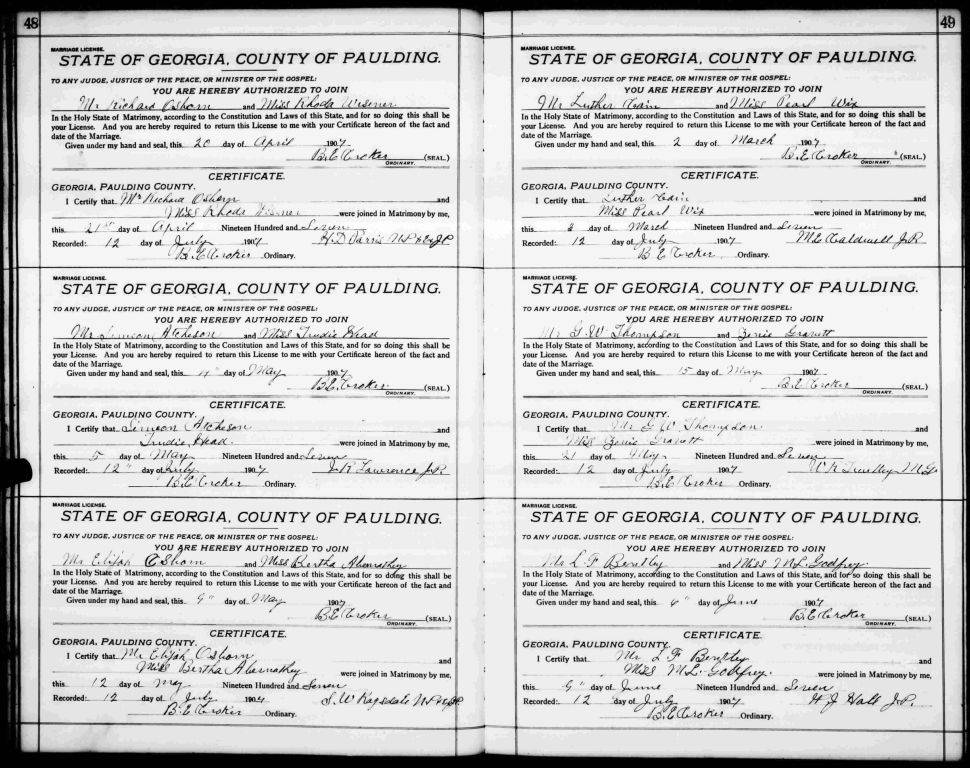 48
MARRIAGE LICENSE.
STATE OF GEORGIA, COUNTY OF PAULDING.
TO ANY JUDGE, JUSTICE OF THE PEACE, OR MINISTER OF THE GOSPEL:
YOU ARE HEREBY AUTHORIZED TO JOIN
Mr Richard Osborn and Miss Rhoda Wisener
In the Holy State of Matrimony, according to the Constitution and Laws of this State, and for so doing this shall be
your License. And you are hereby required to return this License to me with your Certificate hereon of the fact and
date of the Marriage.
Given under my hand and seal, this 20 day of April 1907
B.E Croker (SEAL.)
ORDINARY.
CERTIFICATE.
GEORGIA, PAULDING COUNTY.
I Certify that Mr Richard Osborn and
Miss Rhoda Wisener were joined in Matrimony by me,
this 21st day of April Nineteen Hundred and Seven
Recorded: 12 day of July 1907 H.D Parris
B.E Croker Ordinary.
MARRIAGE LICENSE.
STATE OF GEORGIA, COUNTY OF PAULDING.
TO ANY JUDGE, JUSTICE OF THE PEACE, OR MINISTER OF THE GOSPEL:
YOU ARE HEREBY AUTHORIZED TO JOIN
Mr Simeon Atcheson and Miss Trudie Head
In the Holy State of Matrimony, according to the Constitution and Laws of this State, and for so doing this shall be
your License. And you are hereby required to return this License to me with your Certificate hereon of the fact and
date of the Marriage.
Given under my hand and seal, this day of May 1907
B.E. Croker (SEAL.)
ORDINARY.
CERTIFICATE.
GEORGIA, PAULDING COUNTY.
I Certify that Simeon Atcheson and
Trudie Head were joined in Matrimony by me,
this 5 day of May Nineteen Hundred and Seven
Recorded: 12" day of July 1907 J.R. Lawrence J.P.
B.E Croker Ordinary.
MARRIAGE LICENSE.
STATE OF GEORGIA, COUNTY OF PAULDING.
TO ANY JUDGE, JUSTICE OF THE PEACE, OR MINISTER OF THE GOSPEL:
YOU ARE HEREBY AUTHORIZED TO JOIN
Mr Elijah Osborn and Miss Bertha Abernathey
In the Holy State of Matrimony, according to the Constitution and Laws of this State, and for so doing this shall be
your License. And you are hereby required to return this License to me with your Certificate hereon of the fact and
date of the Marriage.
Given under my hand and seal, this 9" day of May 1907
B.E Croker (SEAL.)
ORDINARY.
CERTIFICATE.
GEORGIA, PAULDING COUNTY.
I Certify that Mr Elijah Osborn and
Miss Bertha Abernathey were joined in Matrimony by me,
this 12 day of May Nineteen Hundred and Seven
Recorded: 12 day of July 190 S.W Ragsdale
B.E Croker Ordinary.
49
MARRIAGE LICENSE.
STATE OF GEORGIA, COUNTY OF PAULDING.
TO ANY JUDGE, JUSTICE OF THE PEACE, OR MINISTER OF THE GOSPEL:
YOU ARE HEREBY AUTHORIZED TO JOIN
Mr Luther Cain and Miss Pearl Wix
In the Holy State of Matrimony, according to the Constitution and Laws of this State, and for so doing this shall be
your License. And you are hereby required to return this License to me with your Certificate hereon of the fact and
date of the Marriage.
Given under my hand and seal, this 2 day of March 1907
B.E Croker (SEAL.)
ORDINARY.
CERTIFICATE.
GEORGIA, PAULDING COUNTY.
I Certify that Luther Cain and
Miss Pearl Wix were joined in Matrimony by me,
this 2 day of March Nineteen Hundred and Seven
Recorded: 12 day of July 1907 M.E Caldwell J.P.
B E Croker Ordinary.
MARRIAGE LICENSE.
STATE OF GEORGIA, COUNTY OF PAULDING.
TO ANY JUDGE, JUSTICE OF THE PEACE, OR MINISTER OF THE GOSPEL:
YOU ARE HEREBY AUTHORIZED TO JOIN
Mr G.W Thompson and Gravett
In the Holy State of Matrimony, according to the Constitution and Laws of this State, and for so doing this shall be
your License. And you are hereby required to return this License to me with your Certificate hereon of the fact and
date of the Marriage.
Given under my hand and seal, this 15 day of May 1907
B.E Croker (SEAL.)
ORDINARY.
CERTIFICATE.
GEORGIA, PAULDING COUNTY.
I Certify that Mr G W Thompson and
Miss Gravett were joined in Matrimony by me,
this 21 day of May Nineteen Hundred and Seven
Recorded: 12 day of July 1907 W R M.G.
B.E Croker Ordinary.
MARRIAGE LICENSE.
STATE OF GEORGIA, COUNTY OF PAULDING.
TO ANY JUDGE, JUSTICE OF THE PEACE, OR MINISTER OF THE GOSPEL:
YOU ARE HEREBY AUTHORIZED TO JOIN
Mr L F Bentley and Miss M.L. Godfrey
In the Holy State of Matrimony, according to the Constitution and Laws of this State, and for so doing this shall be
your License. And you are hereby required to return this License to me with your Certificate hereon of the fact and
date of the Marriage.
Given under my hand and seal, this day of June 1907
B.E Croker (SEAL.)
ORDINARY.
CERTIFICATE.
GEORGIA, PAULDING COUNTY.
I Certify that Mr L F Bentley and
Miss M.L. Godfrey were joined in Matrimony by me,
this 9" day of June Nineteen Hundred and Seven
Recorded: 12 day of July 1907 H J Holt J.P.
B.E Croker Ordinary.